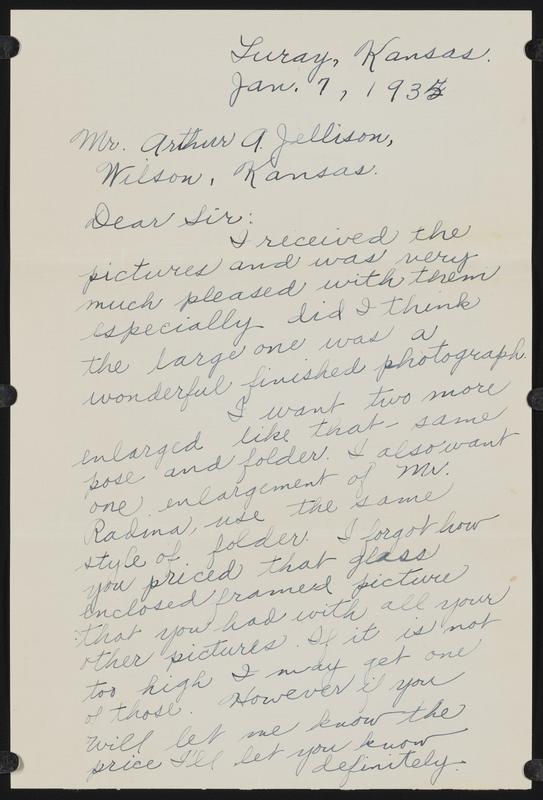 Luray, Kansas.
Jan. 7, 193
Mr. Arthur A. Jellison,
Wilson, Kansas.
Dear Sir:
I received the
pictures and was very
much pleased with them
especially did I think
the large one was a
wonderful finished photograph.
I want two more
enlarged like that - same
pose and folder. I also want
one enlargement of Mr.
Radina, use the same
style of folder. I forgot how
you priced that glass
enclosed framed picture
that you had with all your
other pictures. If it is not
too high I may get one
of those. However if you
will let me know the
price I'll let you know
definitely.